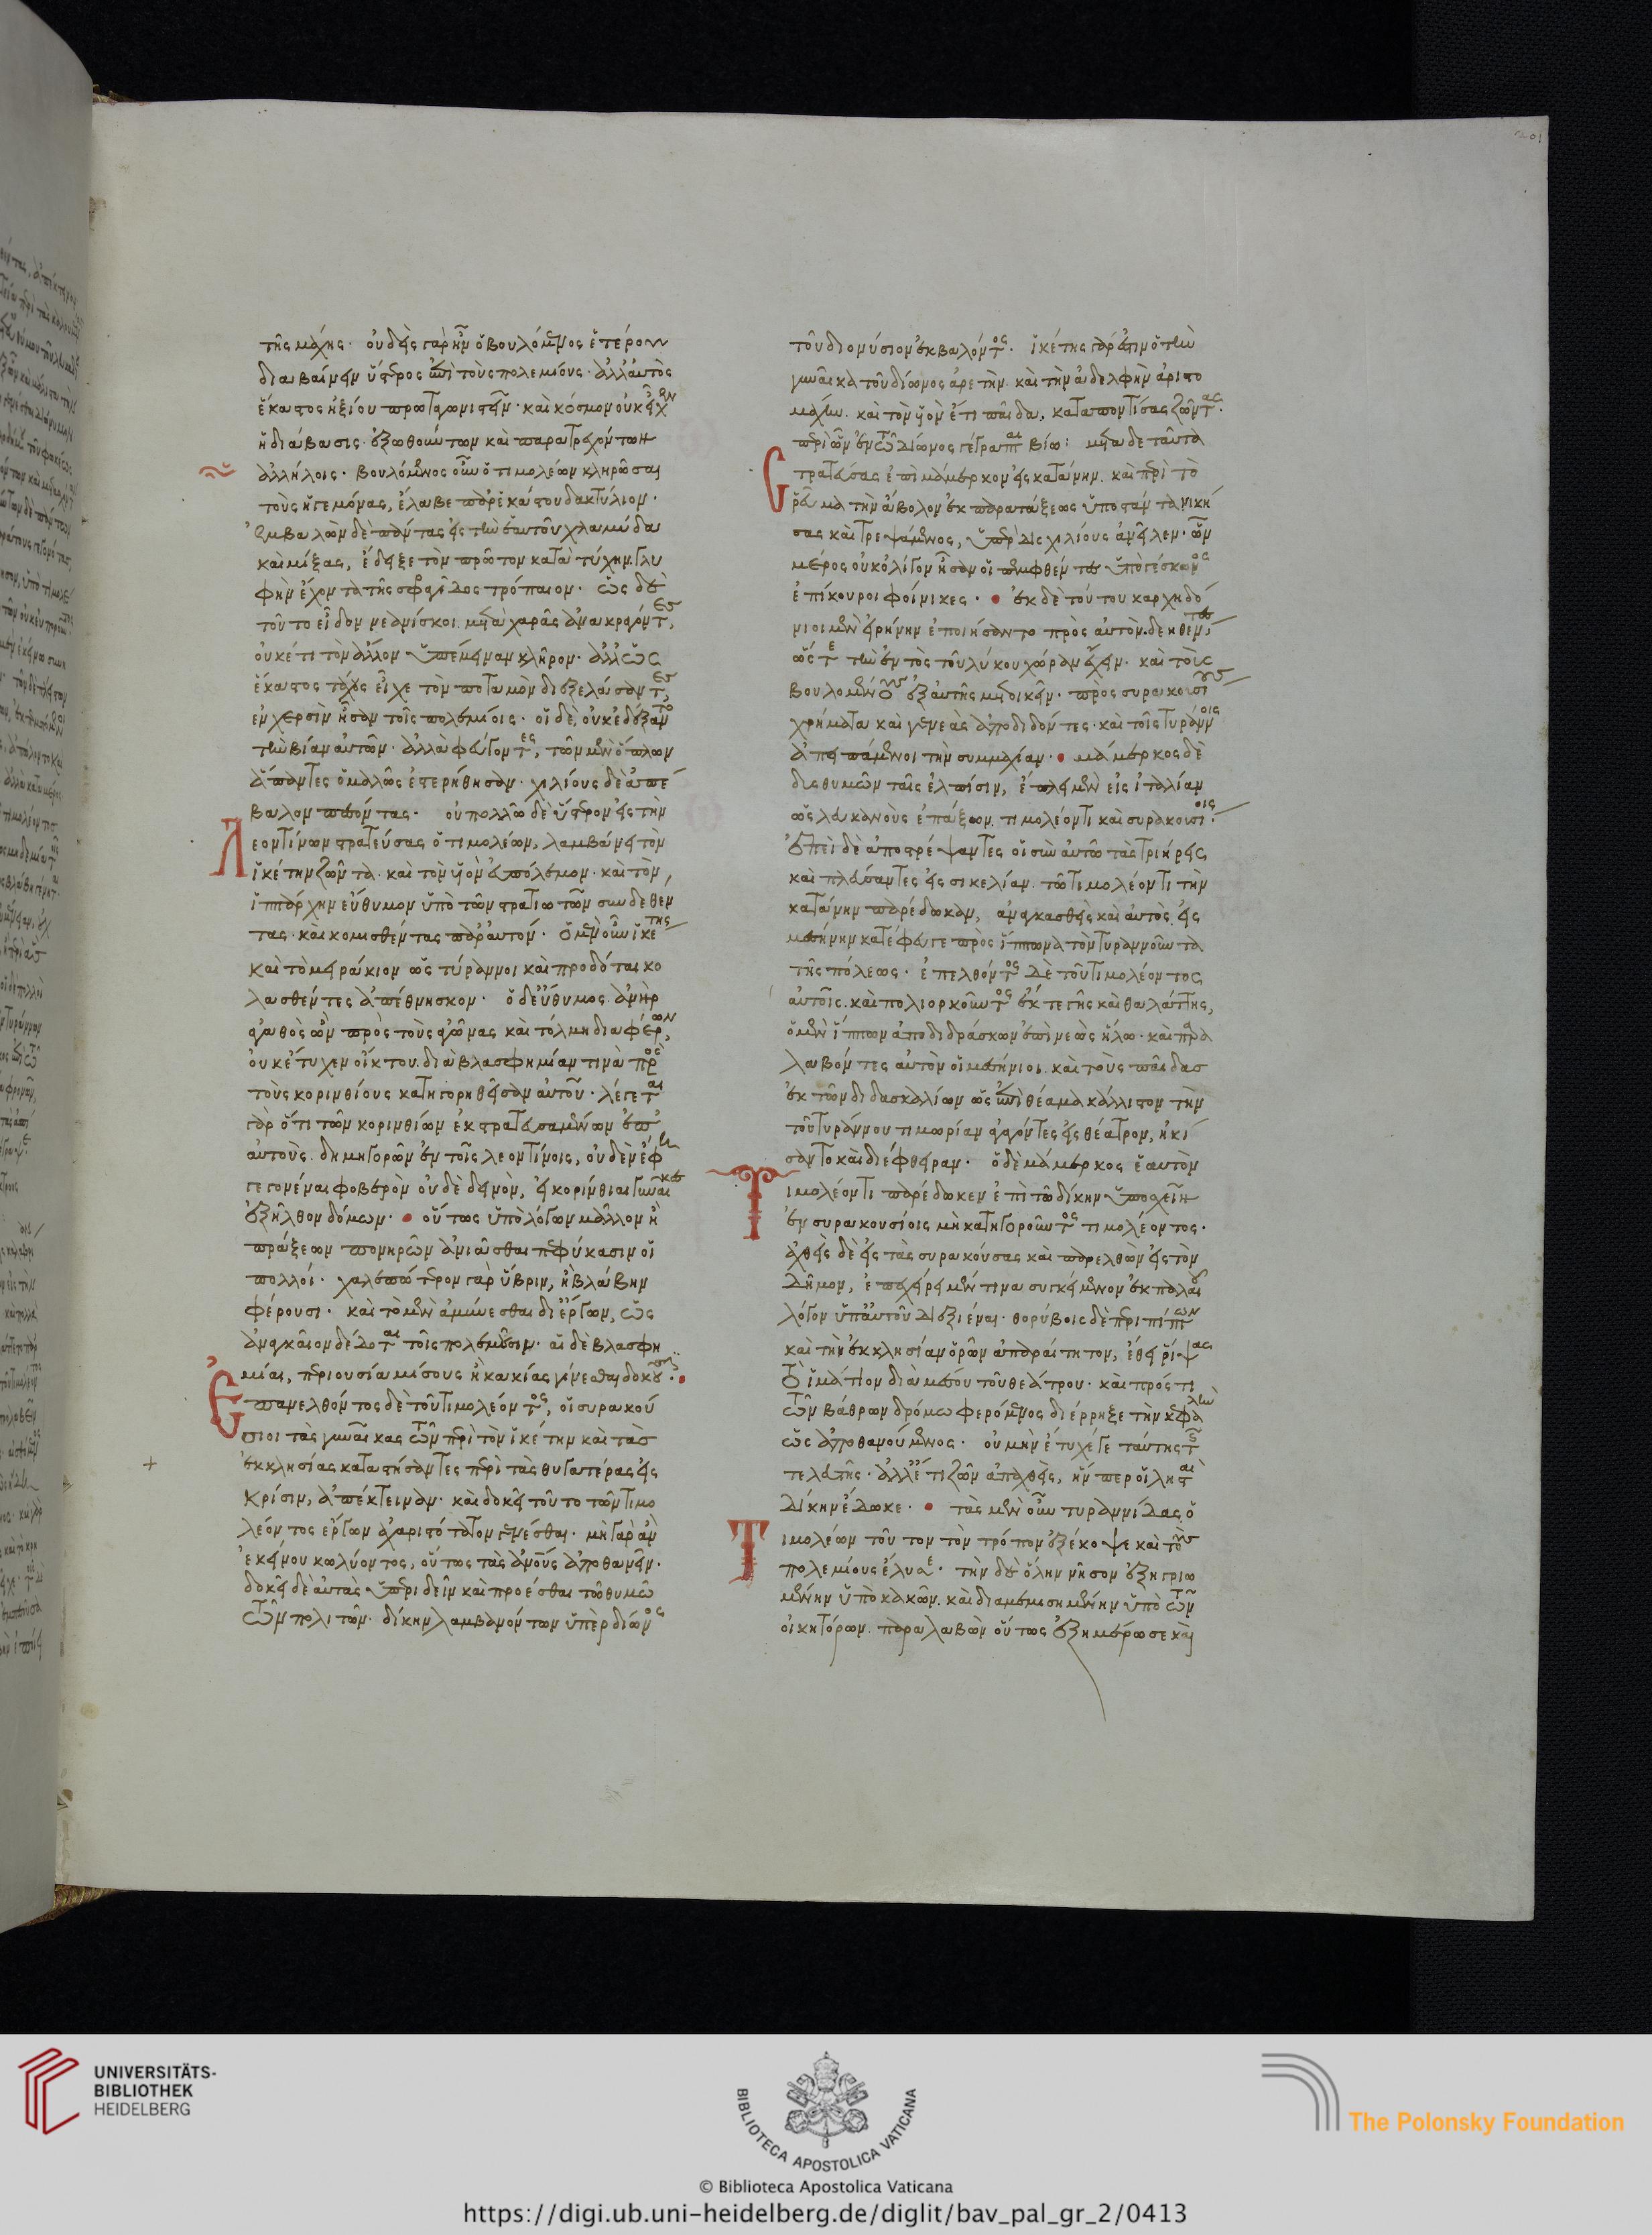 τῆς μάχης· οὐδεὶς γὰρ ἦν ὁ βουλόμενος ἑτέρου
διαβαίνειν ὕστερος ἐπὶ τοὺς πολεμίους· ἀλλ' αὐτὸς
ἕκαστος ἠξίου πρωταγωνιστεῖν· καὶ κόσμον οὐκ εἶχεν
ἡ διάβασις· ἐξωθούντων καὶ παρατρεχόντων
ἀλλήλοις· βουλόμενος οὖν ὁ τιμολέων κληρῶσαι
τοὺς ἡγεμόνας, ἔλαβε παρ' ἑκάστου δακτύλιον·
ἐμβαλὼν δὲ πάντας εἰς τὴν ἑαυτοῦ χλαμύδα
καὶ μίξας, ἔδειξε τὸν πρῶτον κατὰ τύχην γλυ
φὴν ἔχοντα τῆς σφραγῖδος τρόπαιον· ὡς δὲ
τοῦτο εἶδον νεανίσκοι. μετὰ χαρᾶς ἀνακραγόντες,
οὐκέτι τὸν ἄλλον ὑπέμειναν κλῆρον· ἀλλ' ὡς
ἕκαστος τάχος εἶχε τὸν ποταμὸν διεξελάσαντες,
ἐν χερσὶν ἦσαν τοῖς πολεμίοις· οἱ δὲ, οὐκ ἐδέξαντο
τὴν βίαν αὐτῶν· ἀλλὰ φεύγοντες, τῶν μὲν ὅπλων
ἅπαντες ὁμαλῶς ἐστερήθησαν· χιλίους δὲ ἀπέ
βαλον πεσόντας· οὐ πολλῶ δὲ ὕστερον εἰς τὴν
Λεοντίνων στρατεύσας ὁ τιμολέων, λαμβάνει τὸν
ἱκέτην ζῶντα· καὶ τὸν υἱὸν εὐπόλεμον· καὶ τὸν
ἵππαρχην εὔθυμον ὑπὸ τῶν στρατιωτῶν συνδεθέν
τας· καὶ κομισθέντας παρ' αὐτόν· ὁ μὲν οὖν ἱκέτης
καὶ τὸ μειράκιον ὡς τύραννοι καὶ προδόται κο
λασθέντες ἀπέθνησκον· ὁ δ' εὔθυμος. ἀνὴρ
ἀγαθὸς ὢν πρὸς τοὺς ἀγῶνας καὶ τόλμη διαφέρων,
οὐκ ἔτυχεν οἴκτου. διὰ βλασφημίαν τινὰ πρὸς
τοὺς κορινθίους κατηγορηθεῖσαν αὐτοῦ· λέγεται
γὰρ ὅτι τῶν κορινθίων ἐκστρατευσαμένων ἐπ'
αὐτοὺς. δημηγορῶν ἐν τοῖς λεοντίνοις, οὐδὲν ἔφη
γεγονέναι φοβερὸν οὐδὲ δεινὸν, εἰ κορίνθιαι γυναῖκες
ἐξῆλθον δόμων· οὕτως ὑπὸ λόγων μᾶλλον ἢ
πράξεων πονηρῶν ἀνιᾶσθαι πεφύκασιν οἱ
πολλοί· χαλεπώτερον γὰρ ὕβριν, ἢ βλάβην
φέρουσι· καὶ τὸ μὲν ἀμύνεσθαι δι' ἔργων, ὡς
ἀναγκαῖον δέδοται τοῖς πολεμοῦσιν· αἱ δὲ βλασφη
μίαι, περιουσία μίσους ἢ κακίας γίνεσθαι δοκοῦσιν·
Ἐπανελθόντος δὲ τοῦ τιμολέοντος, οἱ συρακού
σιοι τὰς γυναῖκας τῶν περὶ τὸν ἱκέτην καὶ τὰσ
ἐκκλησίας καταστήσαντες περὶ τὰς θυγατέρας εἰς
κρίσιν, ἀπέκτειναν· καὶ δοκεῖ τοῦτο τῶν τιμο
λέοντος ἔργων ἀχαριστότατον γενέσθαι· μὴ γὰρ ἂν
ἐκείνου κωλύοντος, οὕτως τὰς ἀνους ἀποθανεῖν·
δοκεῖ δὲ αὐτὰς ὑπεριδεῖν καὶ προέσθαι τῶ θυμῶ
τῶν πολιτῶν· δίκην λαμβανόντων ὑπὲρ δίωνος
τοῦ διονύσιον ἐκβαλόντος· ἱκέτης γάρ ἐστιν ὁ τὴν
γυναῖκα τοῦ δίωνος ἀρετὴν. καὶ τὴν ἀδελφὴν ἀριστο
μάχην. καὶ τὸν υἱὸν ἔτι παῖδα, καταποντίσας ζῶντας·
περὶ ὧν ἐν τῶ δίωνος γέγραπται βίω: μετὰ δε ταῦτα
Στρατεύσας ἐπὶ μάμερκον εἰς κατάνην. καὶ περὶ τὸ
ῥεῦμα τὴν ἄβολον ἐκ παρατάξεως ὑποστάντα νική
σας καὶ τρεψάμενος, ὑπὲρ δισχιλίους ἀνεῖλεν· ὧν
μέρος οὐκ ὀλίγον ἦσαν οἱ πεμφθέντες ὑπὸ γέσκωνος
ἐπίκουροι φοίνικες· ἐκ δὲ τούτου καρχηδό
νιοι μὲν εἰρήνην ἐποιήσαντο πρὸς αὐτὸν. δεηθέντες,
ὥστε τὴν ἐντὸς τοῦ λύκου χώραν ἔχειν· καὶ τοῖς
βουλομένοις ἐξ αὐτῆς μετοικεῖν· πρὸς συρακουσίους
χρήματα καὶ γενεὰς ἀποδιδόντες· καὶ τοῖς τυράννοις
ἀπειπάμενοι τὴν συμμαχίαν· μάμερκος δὲ
δυσθυμῶν ταῖς ἐλπίσιν, ἔπλει μὲν εἰς ἰταλίαν
ὡς λευκανοὺς ἐπάξων. τιμολέοντι καὶ συρακουσίοις·
ἐπεὶ δὲ ἀποστρέψαντες οἱ σὺν αὐτῶ τὰς τριήρεις
καὶ πλεύσαντες εἰς σικελίαν. τῶ τιμολέοντι τὴν
κατάνην παρέδωκαν, ἀναγκασθεὶς καὶ αὐτὸς. εἰς
μεσήνην κατέφευγε πρὸς ἵππωνα τὸν τυραννοῦντα
τῆς πόλεως· ἐπελθόντος δὲ τοῦ τιμολέοντος
αὐτοῖς. καὶ πολιορκοῦντος ἔκ τε γῆς καὶ θαλάττης,
ὁ μὲν ἵππων ἀποδιδράσκων ἐπὶ νεὼς ἥλω· καὶ παρα
λαβόντες αὐτὸν οἱ μεσήνιοι. καὶ τοὺς παῖδας
ἐκ τῶν διδασκαλίων ὡς ἐπὶ θέαμα κάλλιστον τὴν
τοῦ τυράννου τιμωρίαν ἀγαγόντες εἰς θέατρον, ἠκί
σαντο καὶ διέφθειραν· ὁ δὲ μάμερκος ἑαυτὸν
Τιμολέοντι παρέδωκεν ἐπὶ τῶ δίκην ὑποσχεῖν
ἐν συρακουσίοις μὴ κατηγοροῦντος τιμολέοντος·
ἀχθεὶς δὲ εἰς τὰς συρακούσας καὶ παρελθὼν εἰς τὸν
δῆμον, ἐπεχείρει μέν τινα συγκείμενον ἐκ παλαιοῦ
λόγον ὑπ' αὐτοῦ διεξιέναι· θορύβοις δὲ περιπίπτων
καὶ τὴν ἐκκλησίαν ὁρῶν ἀπαραίτητον, ἔθει ῥίψας
τὸ ἱμάτιον διὰ μέσου τοῦ θεάτρου· καὶ πρός τι
τῶν βάθρων δρόμω φερόμενος διέρρηξε τὴν κεφαλὴν
ὡς ἀποθανούμενος· οὐ μὴν ἔτυχέ γε ταύτης τῆς
τελευτῆς· ἀλλ' ἔτι ζῶν ἀπαχθεὶς, ἥνπερ οἱ λησταὶ
δίκην ἔδωκε· τὰς μὲν οὖν τυραννίδας ὁ
Τιμολέων τοῦτον τὸν τρόπον ἐξέκοψε καὶ τοὺς
πολεμίους ἔλυσε· τὴν δὲ ὅλην νῆσον ἐξηγριω
μένην ὑπὸ κακῶν. καὶ διαμεμισημένην ὑπὸ τῶν
οἰκητόρων. παραλαβὼν οὕτως ἐξημέρωσε καὶ
UNIVERSITÄTS-
BIBLIOTHEK
HEIDELBERG
BIBLIOTECA APOSTOLICA VATICANA
The Polonsky Foundation
© Biblioteca Apostolica Vaticana
https://digi.ub.uni-heidelberg.de/diglit/bav_pal_gr_2/0413